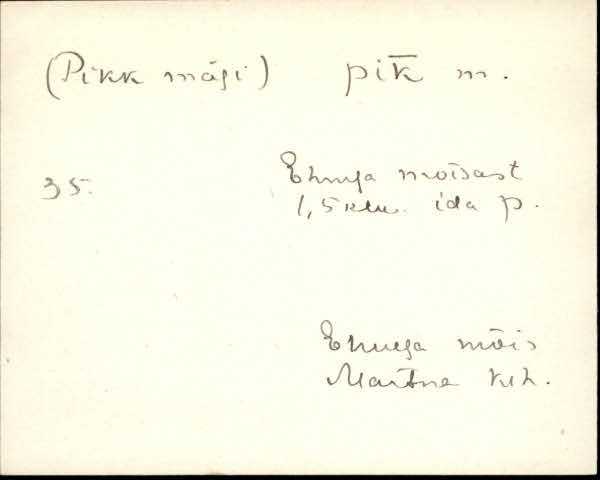 (Pikk mägi) pik̅ m.
35. Ehmja mõisast
1,5 klm. ida p.
Ehmja mõis
Martna khk.